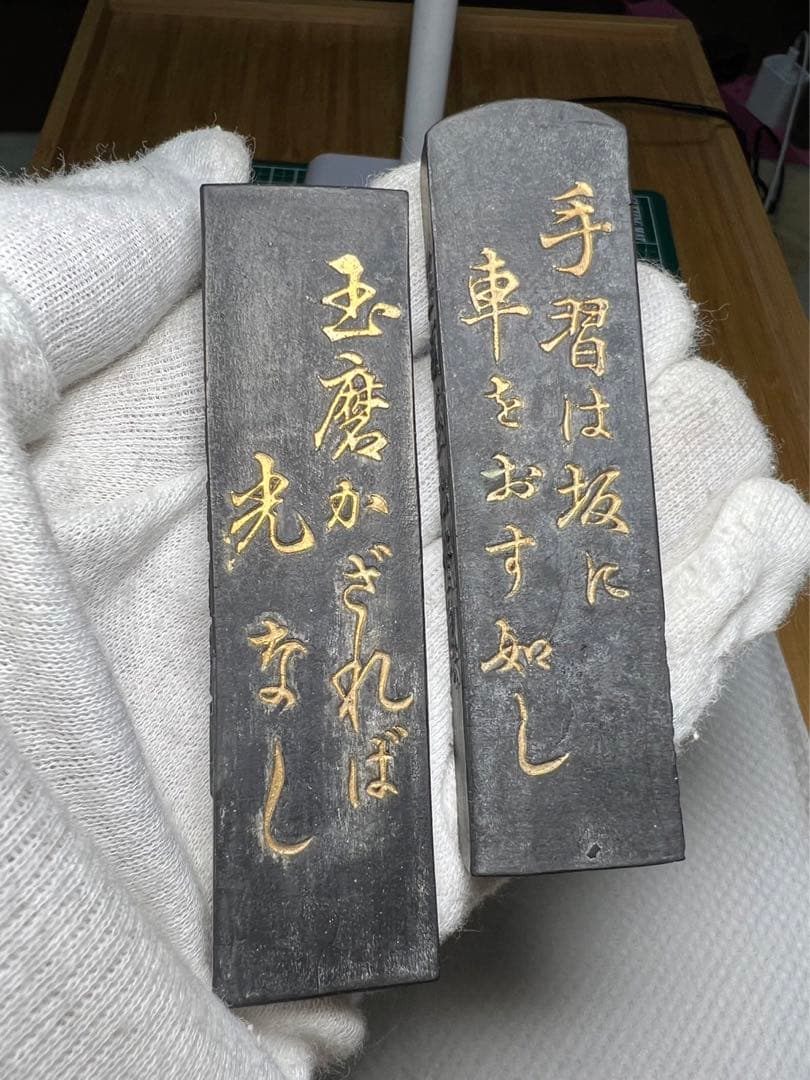 手習は坂に
車をおす如し
玉磨かざれば
光なし